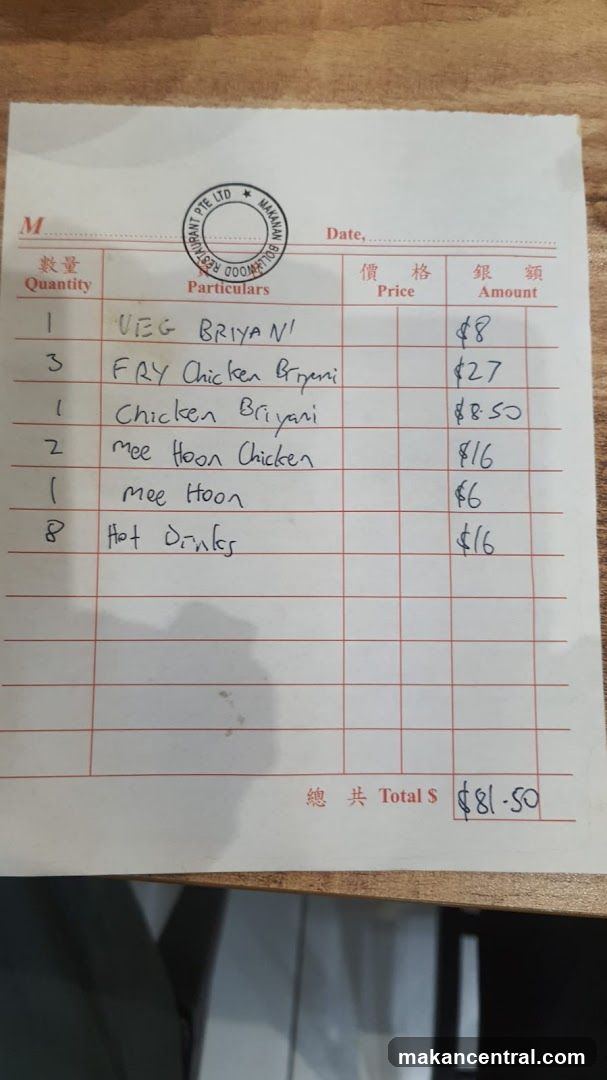 MAKANAN BOLLYWOOD RESTAURANT PTE LTD ★
M
Date,
數量 價格 銀額
Quantity Particulars Price Amount
1 VEG BRIYANI $8
3 FRY Chicken Briyani $27
1 Chicken Briyani $8.50
2 Mee Hoon Chicken $16
1 Mee Hoon $6
8 Hot Drinks $16
總共 Total $ $81.50
makancentral.com